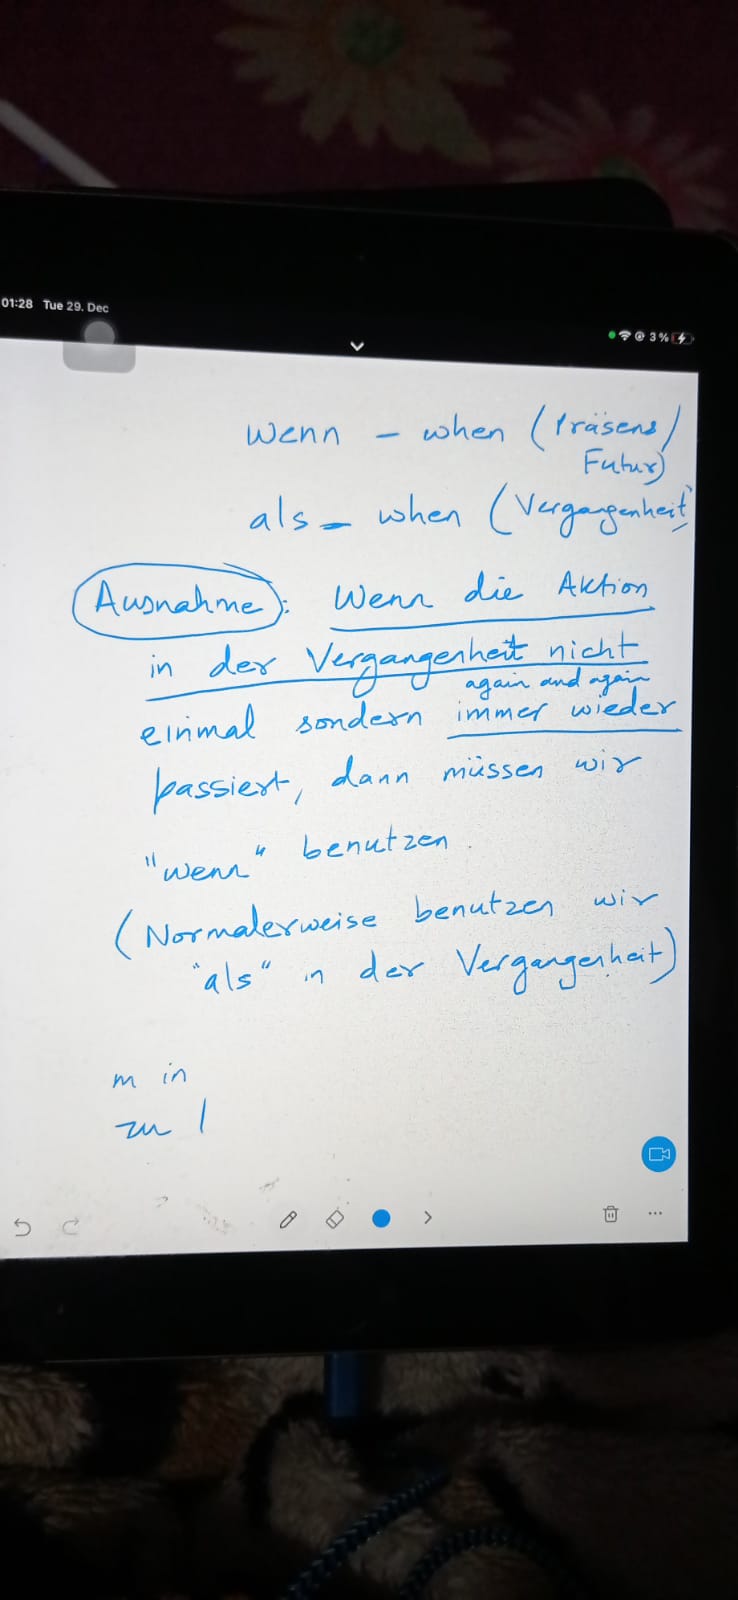 01:28 Tue 29. Dec
3%
wenn – when (Präsens/
Futur)
als – when (Vergangenheit)
Ausnahme: Wenn die Aktion
in der Vergangenheit nicht
again and again
einmal sondern immer wieder
passiert, dann müssen wir
"wenn" benutzen.
(Normalerweise benutzen wir
"als" in der Vergangenheit)
m in
zu